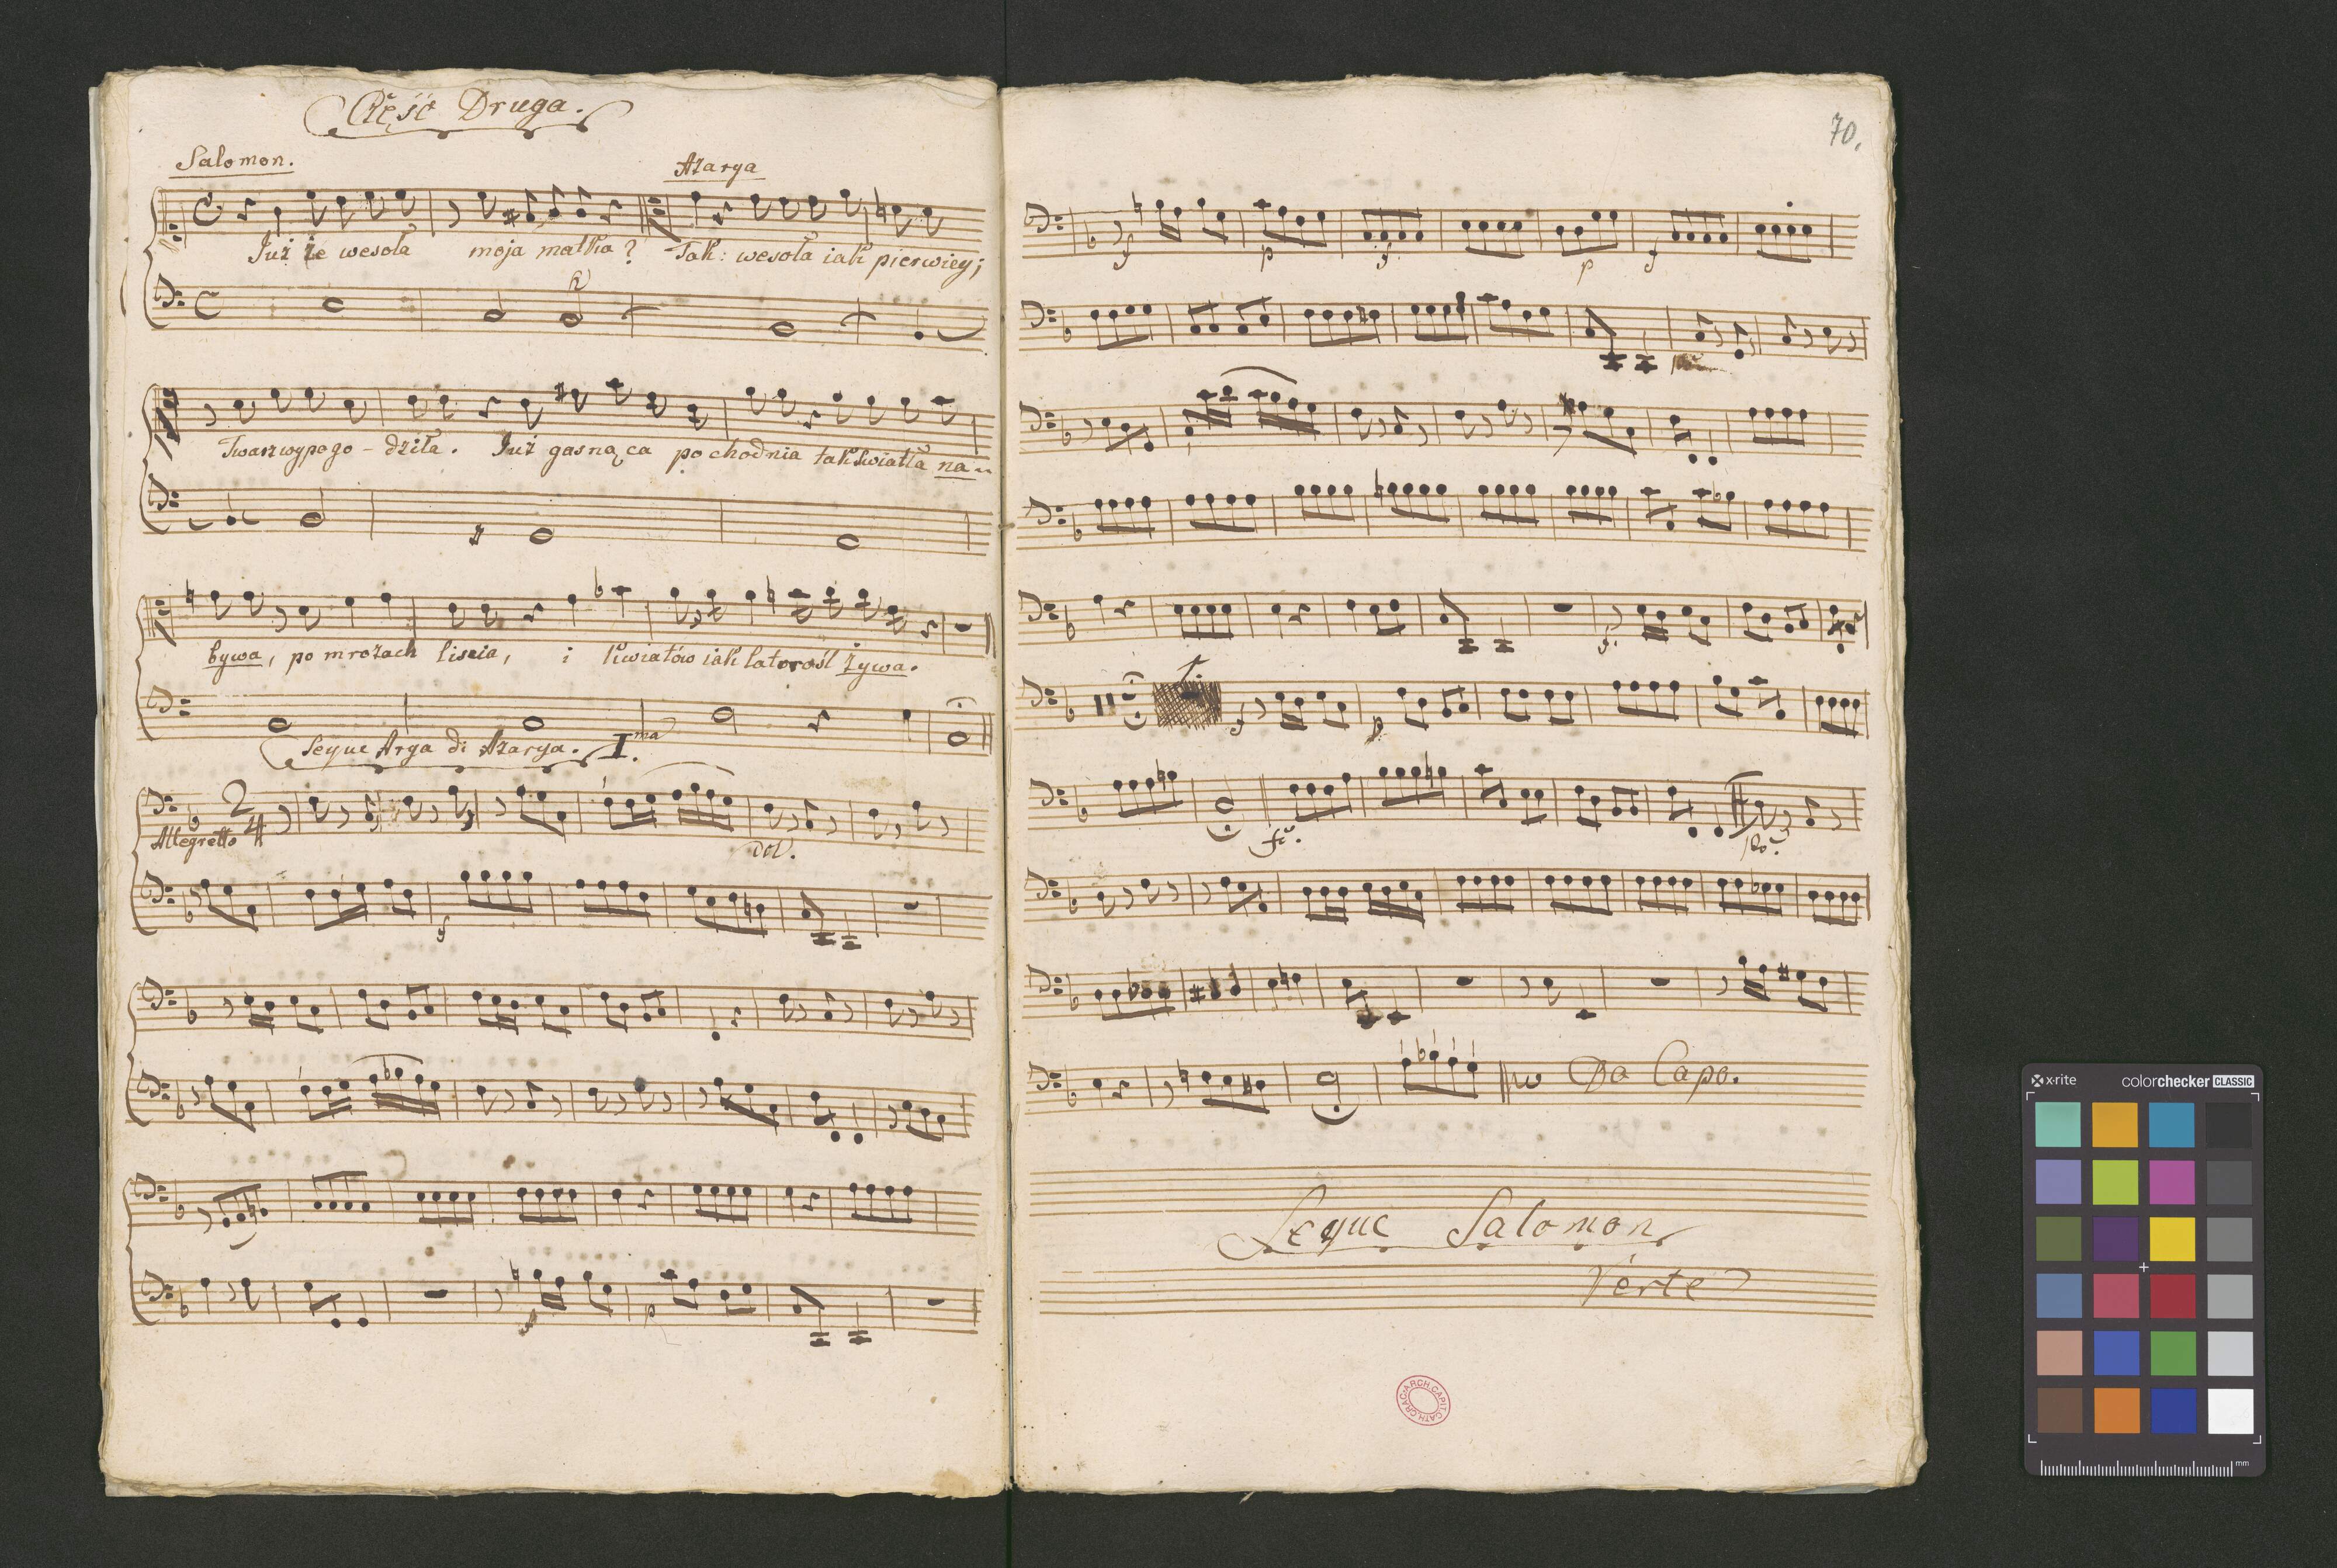 Część Druga.
Salomon.
Azarya
Już że wesoła moja matka? Tak: wesoła iak pierwiey;
Twarz wypogo-dziła. Już gasnąca pochodnia tak światła na-
bywa, po mrozach liscia, i kwiatów iak latorośl żywa.
Seque Arya di Azarya. I.ma
2
4
Allegretto
dol.
f
f
p
70.
f
p
f
p
f
f.
1.
f
p
fe.
po.
Da Capo.
Seque Salomon
Verte
ARCH. CAPIT. CATH. CRAC.
x-rite
colorchecker CLASSIC
mm